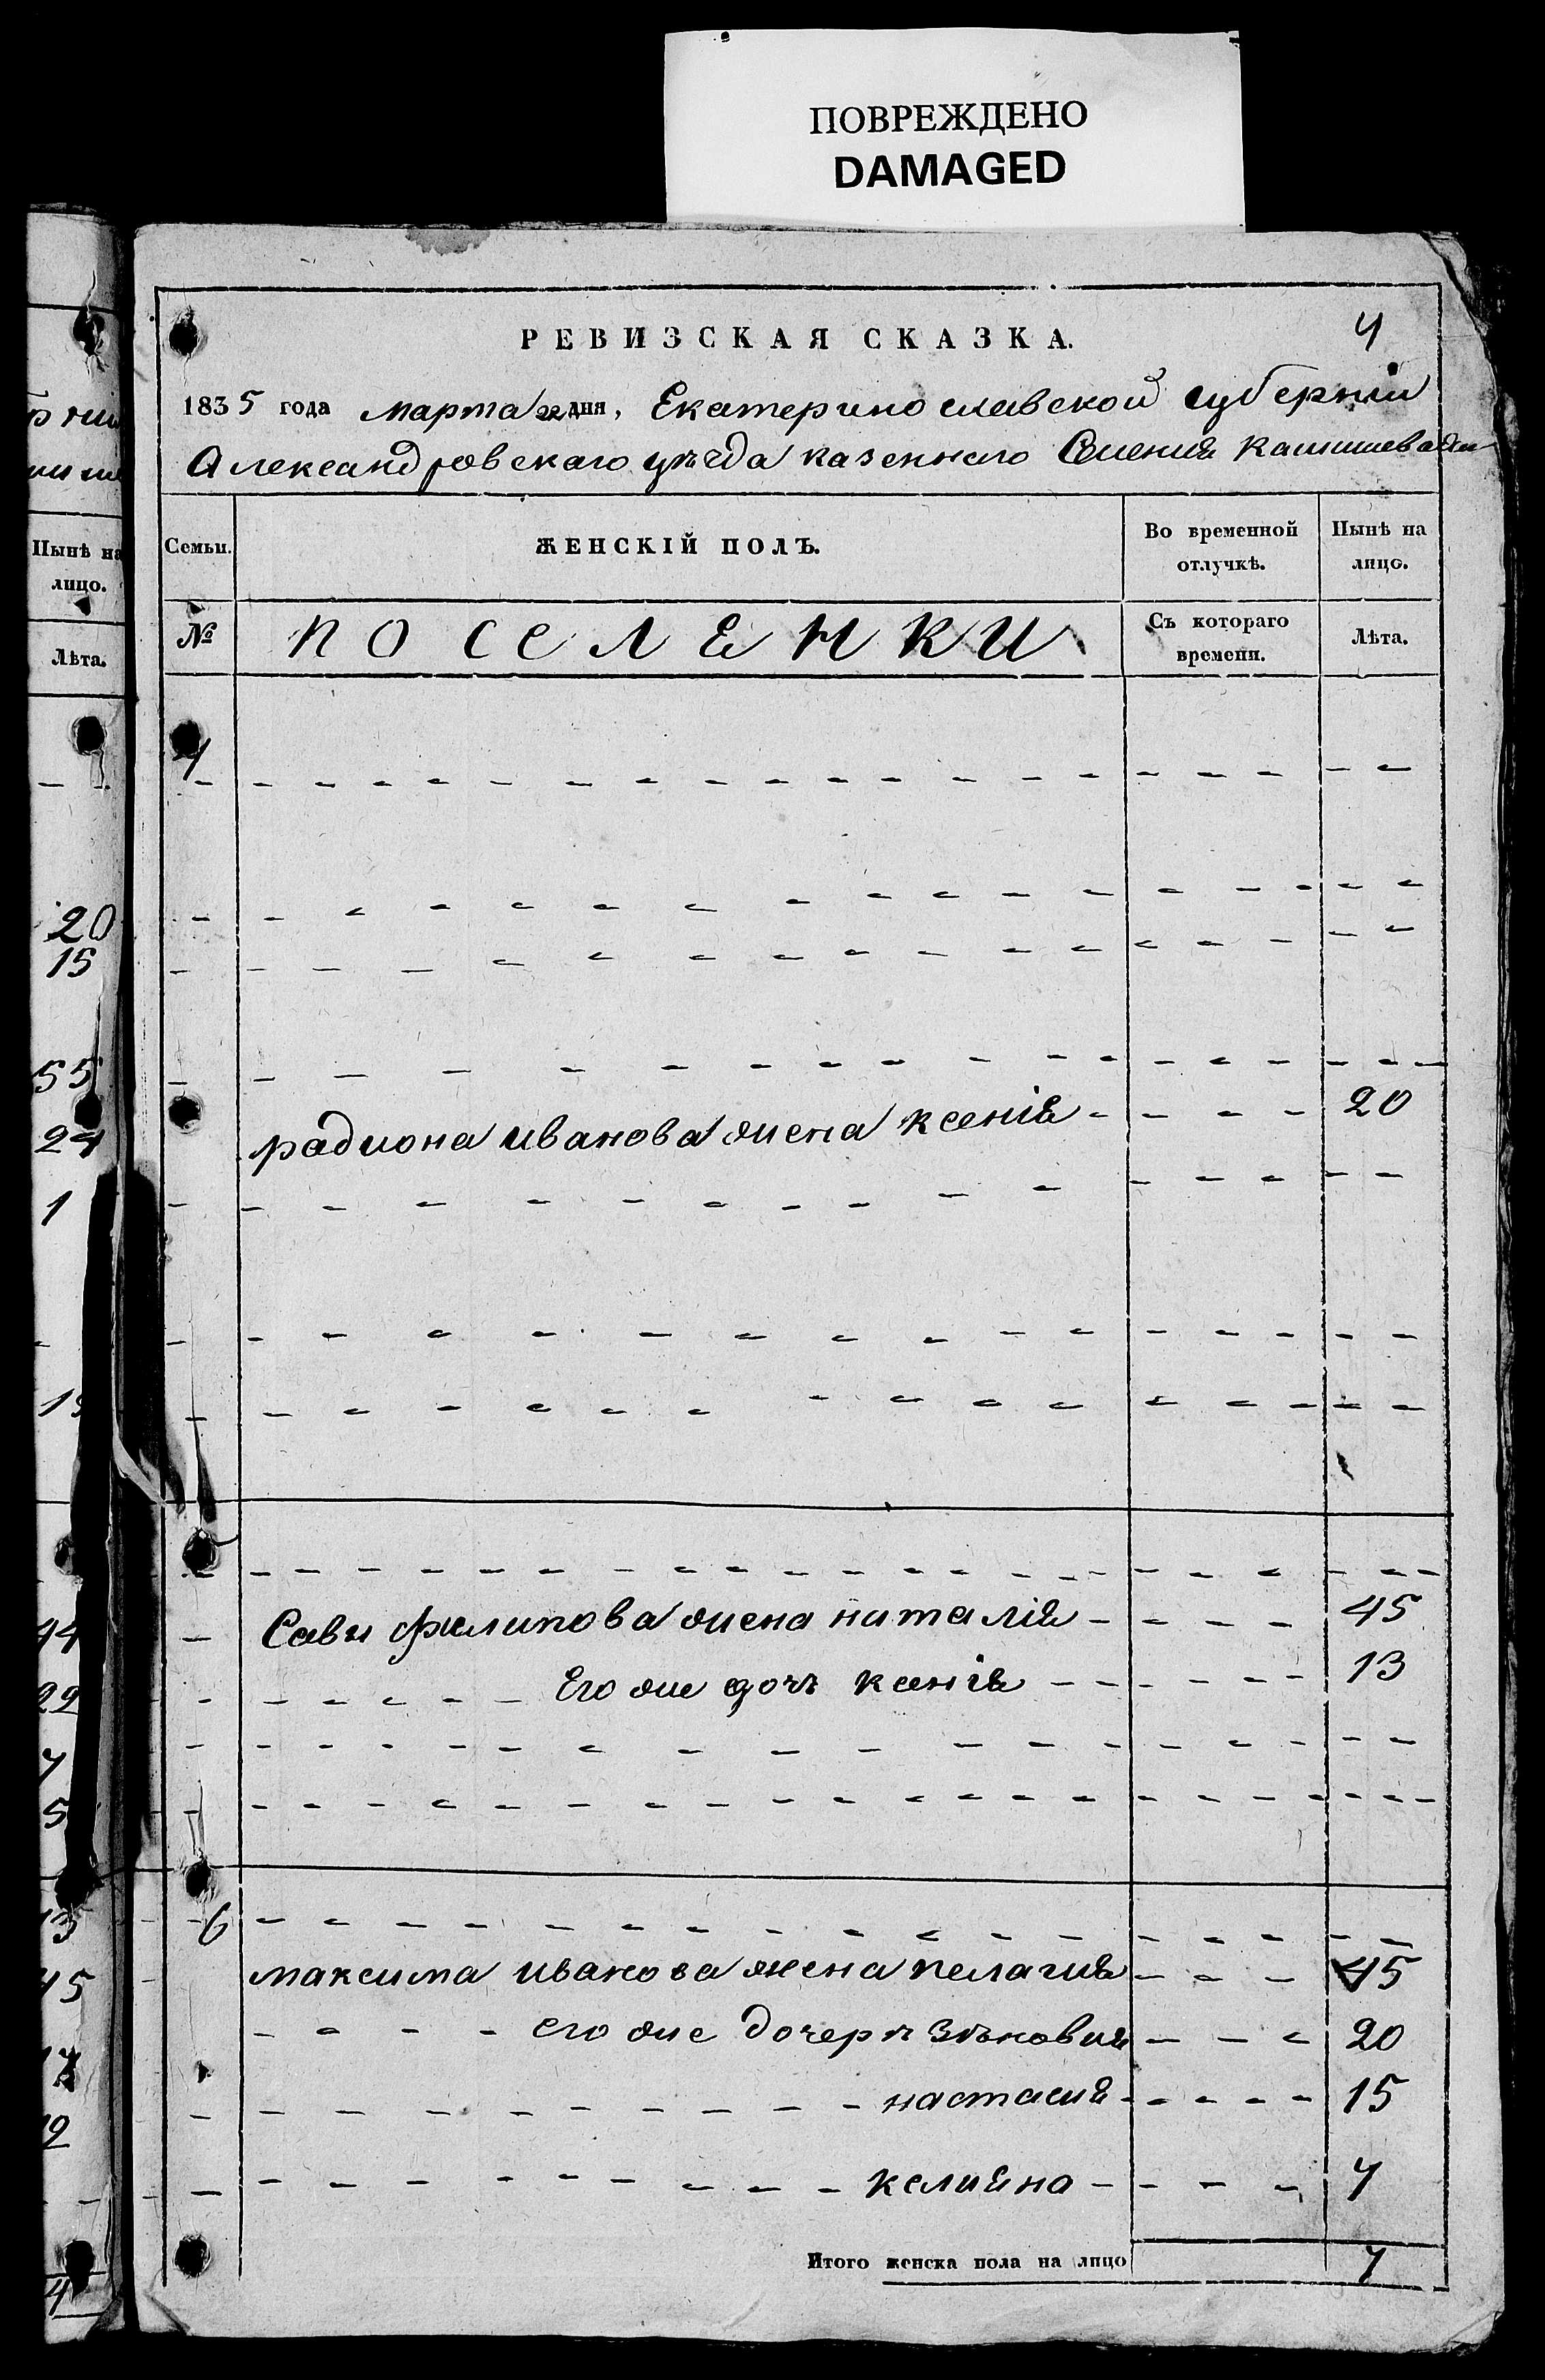 ПОВРЕЖДЕНО
DAMAGED
РЕВИЗСКАЯ СКАЗКА.
4
1835 года марта 22 дня, Екатеринославской губерніи
Александровскаго уѣзда казенного Селения Камышевахи
Нынѣ на
лицо.
Лѣта.
20
15
55
24
1
44
22
7
5
13
45
Семьи.
ЖЕНСКІЙ ПОЛЪ.
Во временной
отлучкѣ.
Нынѣ на
лицо.
№
ПОСЕЛЕНКИ
Съ котораго
времени.
Лѣта.
радиона иванова жена ксенія - - - - 20
Савы филипова жена наталія - - - - 45
Его же дочъ ксенія - - - - - 13
6
максима иванова жена пелагия - - - 45
его же дочери Зѣновия - - - 20
настасия - - - - - 15
калияна - - - - 7
Итого женска пола на лицо 7